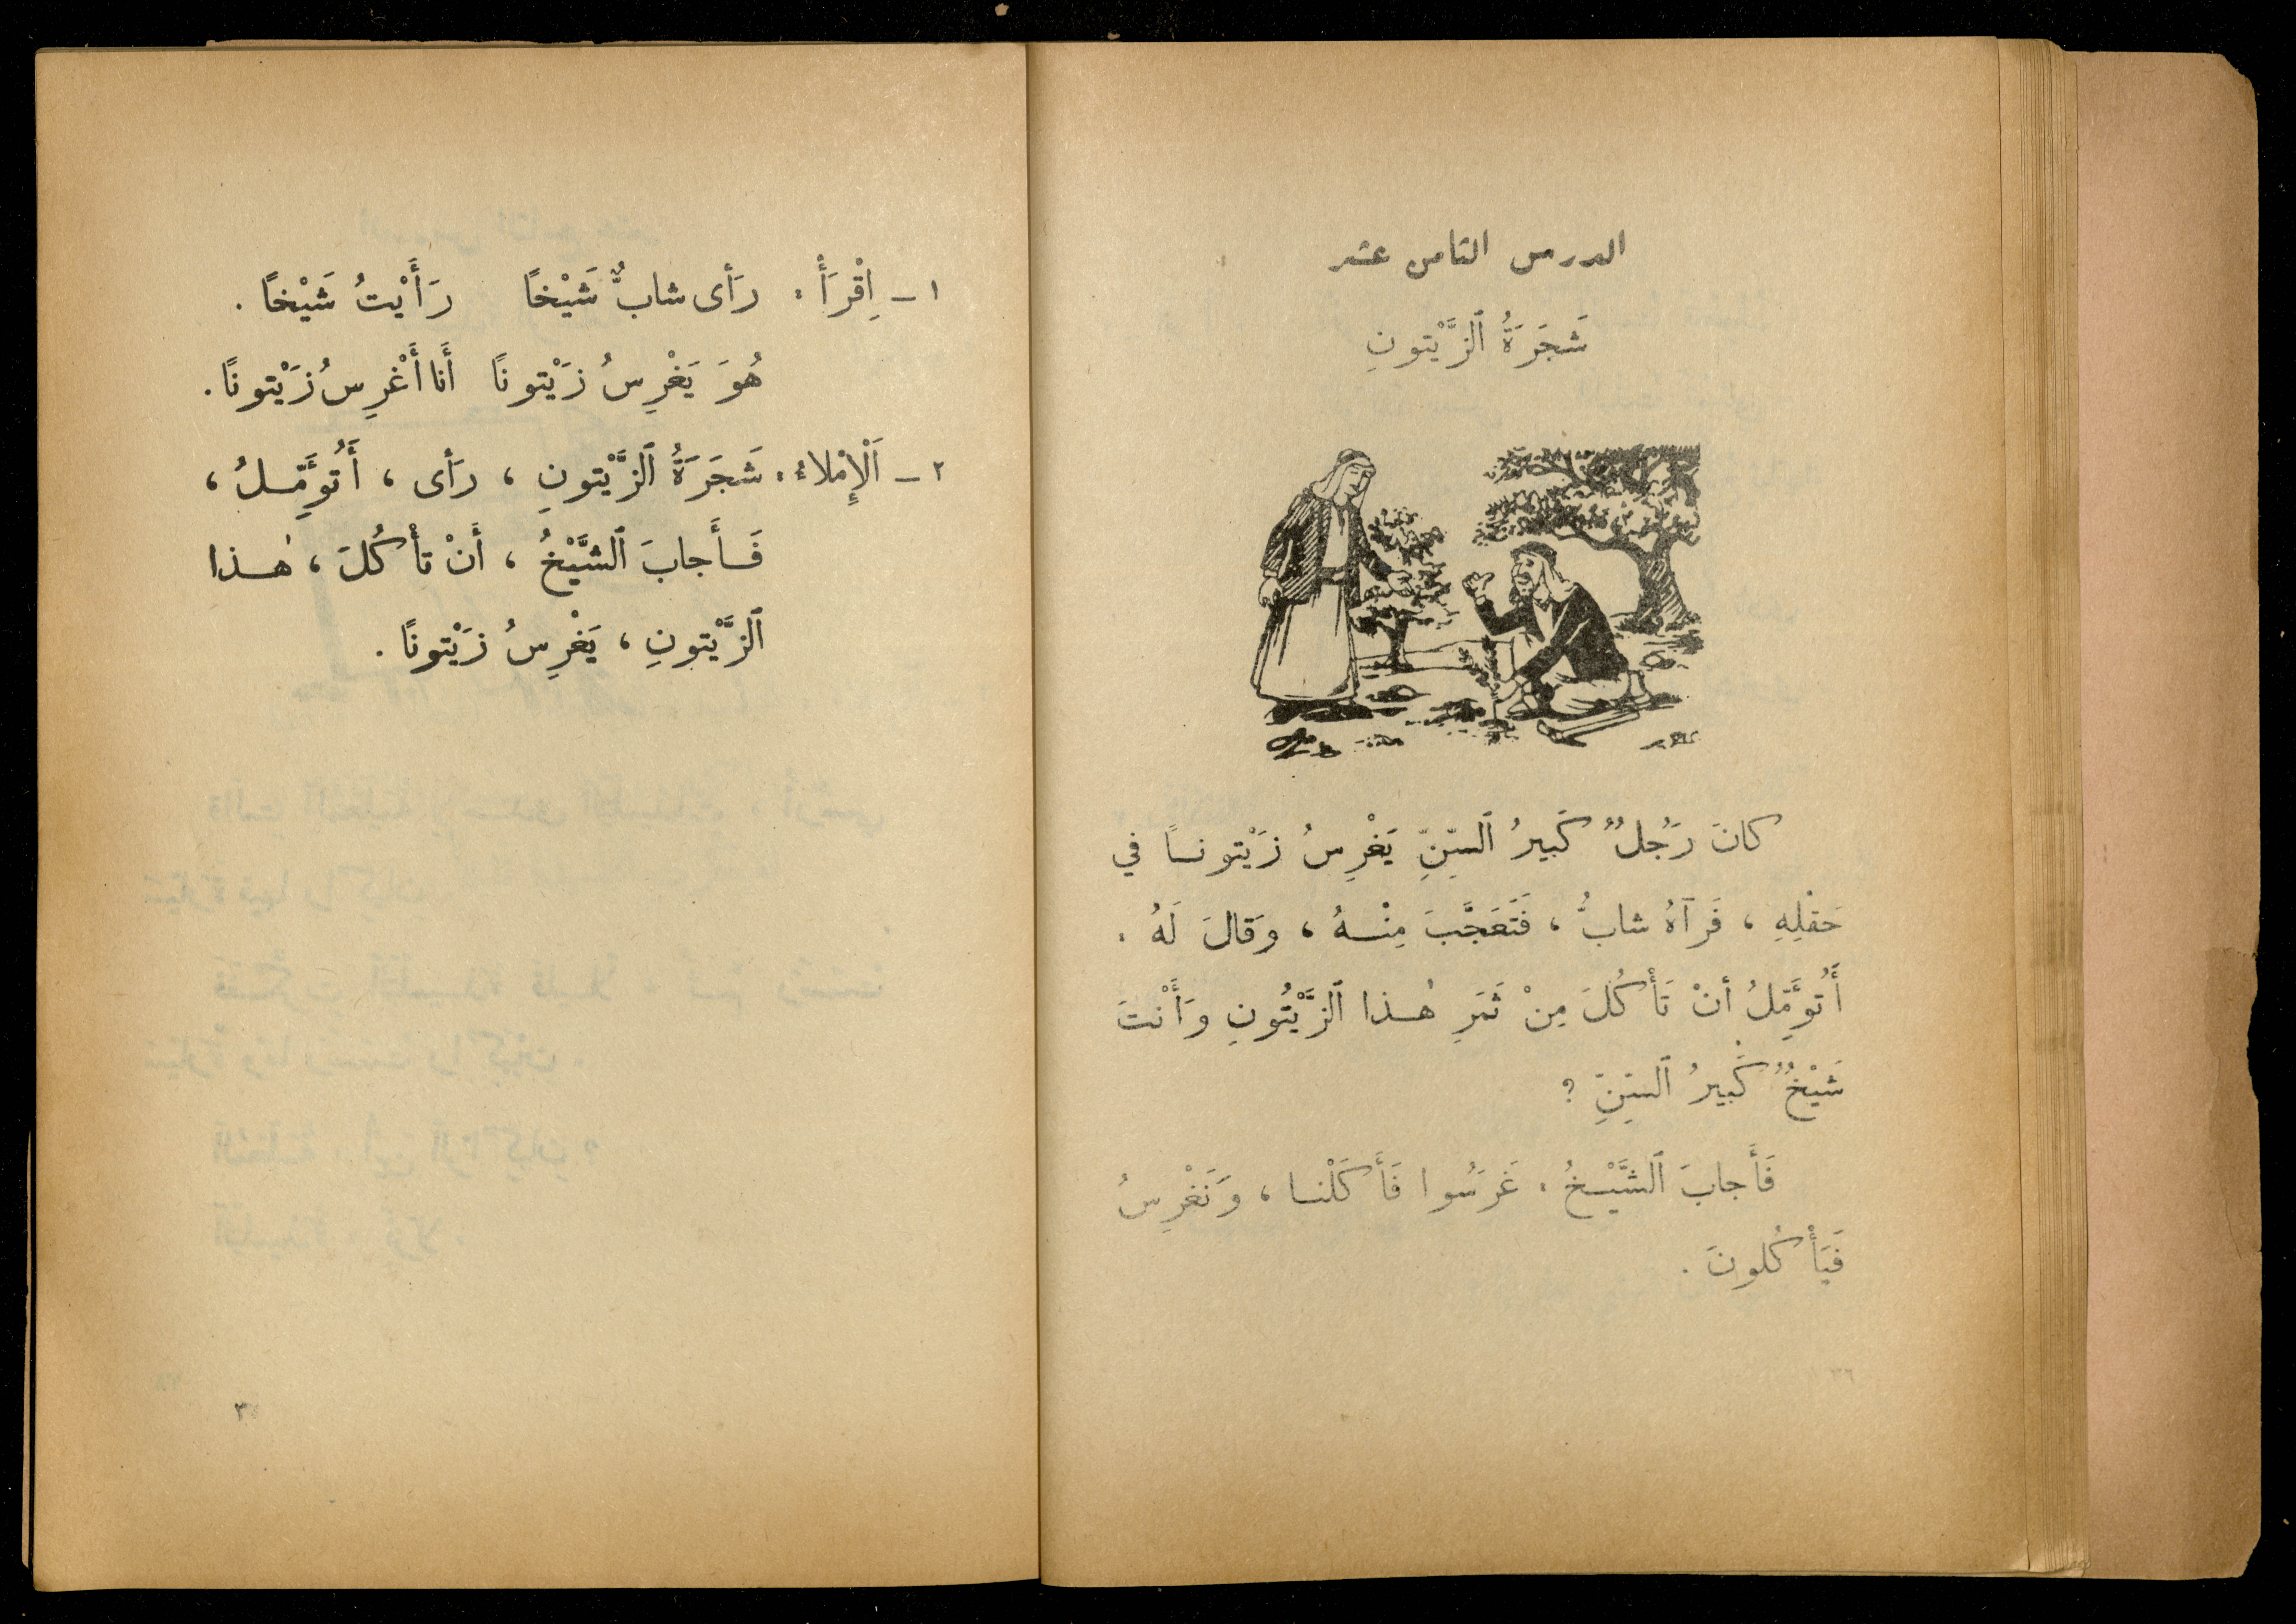 الدرس الثامن عشر
شَجَرَةُ ٱلزَّيْتونِ
كانَ رَجُلٌ كَبيرُ ٱلسِّنِّ يَغْرِسُ زَيْتونـاً في
حَقْلِهِ ، فَرَآهُ شابٌّ ، فَتَعَجَّبَ مِنْـهُ ، وَقالَ لَهُ :
أَتُؤَمِّلُ أنْ تَأْكُلَ مِنْ ثَمَرِ هٰـذا ٱلزَّيْتُونِ وَأَنْتَ
شَيْخٌ كَبيرُ ٱلسِّنِّ ؟
فَأَجابَ ٱلشَّيْـخُ : غَرَسُوا فَأَكَلْنـا ، وَنَغْرِسُ
فَيَأْكُلونَ .
١ – اِقْرَأْ : رَأى شابٌّ شَيْخًا رَأَيْتُ شَيْخًا .
هُوَ يَغْرِسُ زَيْتونًا أَنا أَغْرِسُ زَيْتونًا .
٢ – اَلْإِمْلاءُ : شَجَرَةُ ٱلزَّيْتونِ ، رَأى ، أَتُؤَمِّـلُ ،
فَـأَجابَ ٱلشَّيْخُ ، أَنْ تَأْكُلَ ، هٰـذا
ٱلزَّيْتونِ ، يَغْرِسُ زَيْتونًا .